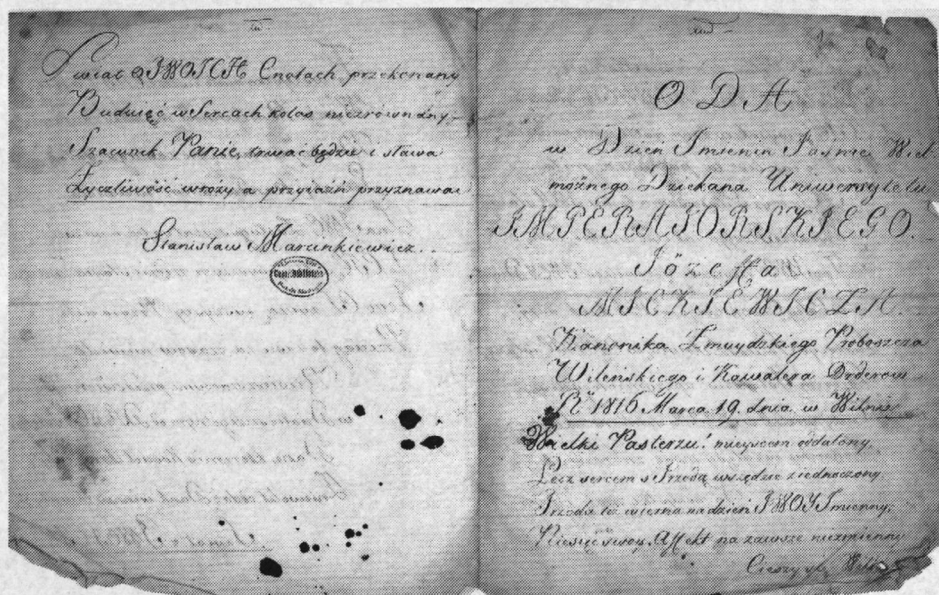 Świat o TWOICH Cnotach przekonany
Buduięć w Sercach kolos niezrównany
Szacunek Panie, trwać będzie i sława
Życzliwość wróży a przyiaźń przyznawa
Stanisław Marcinkiewicz.
ODA
w Dzień Imienin Jaśnie Wiel
możnego Dziekana Uniwersytetu
IMPERATORSKIEGO.
Józefa
MICKIEWICZA.
Kanonika Żmuydzkiego Proboszcza
Wileńskiego i Kawalera Orderow
Rᵘ 1816 Marca 19. dnia w Wilnie
Wielki Pasterzu! mieyscem oddalony,
Lecz sercem s Trzodą wszędzie ziednoczony.
Trzoda też wierna na dzień TWOY Imienny,
Niesie swóy Affekt na zawsze niezmienny
Cieszy się